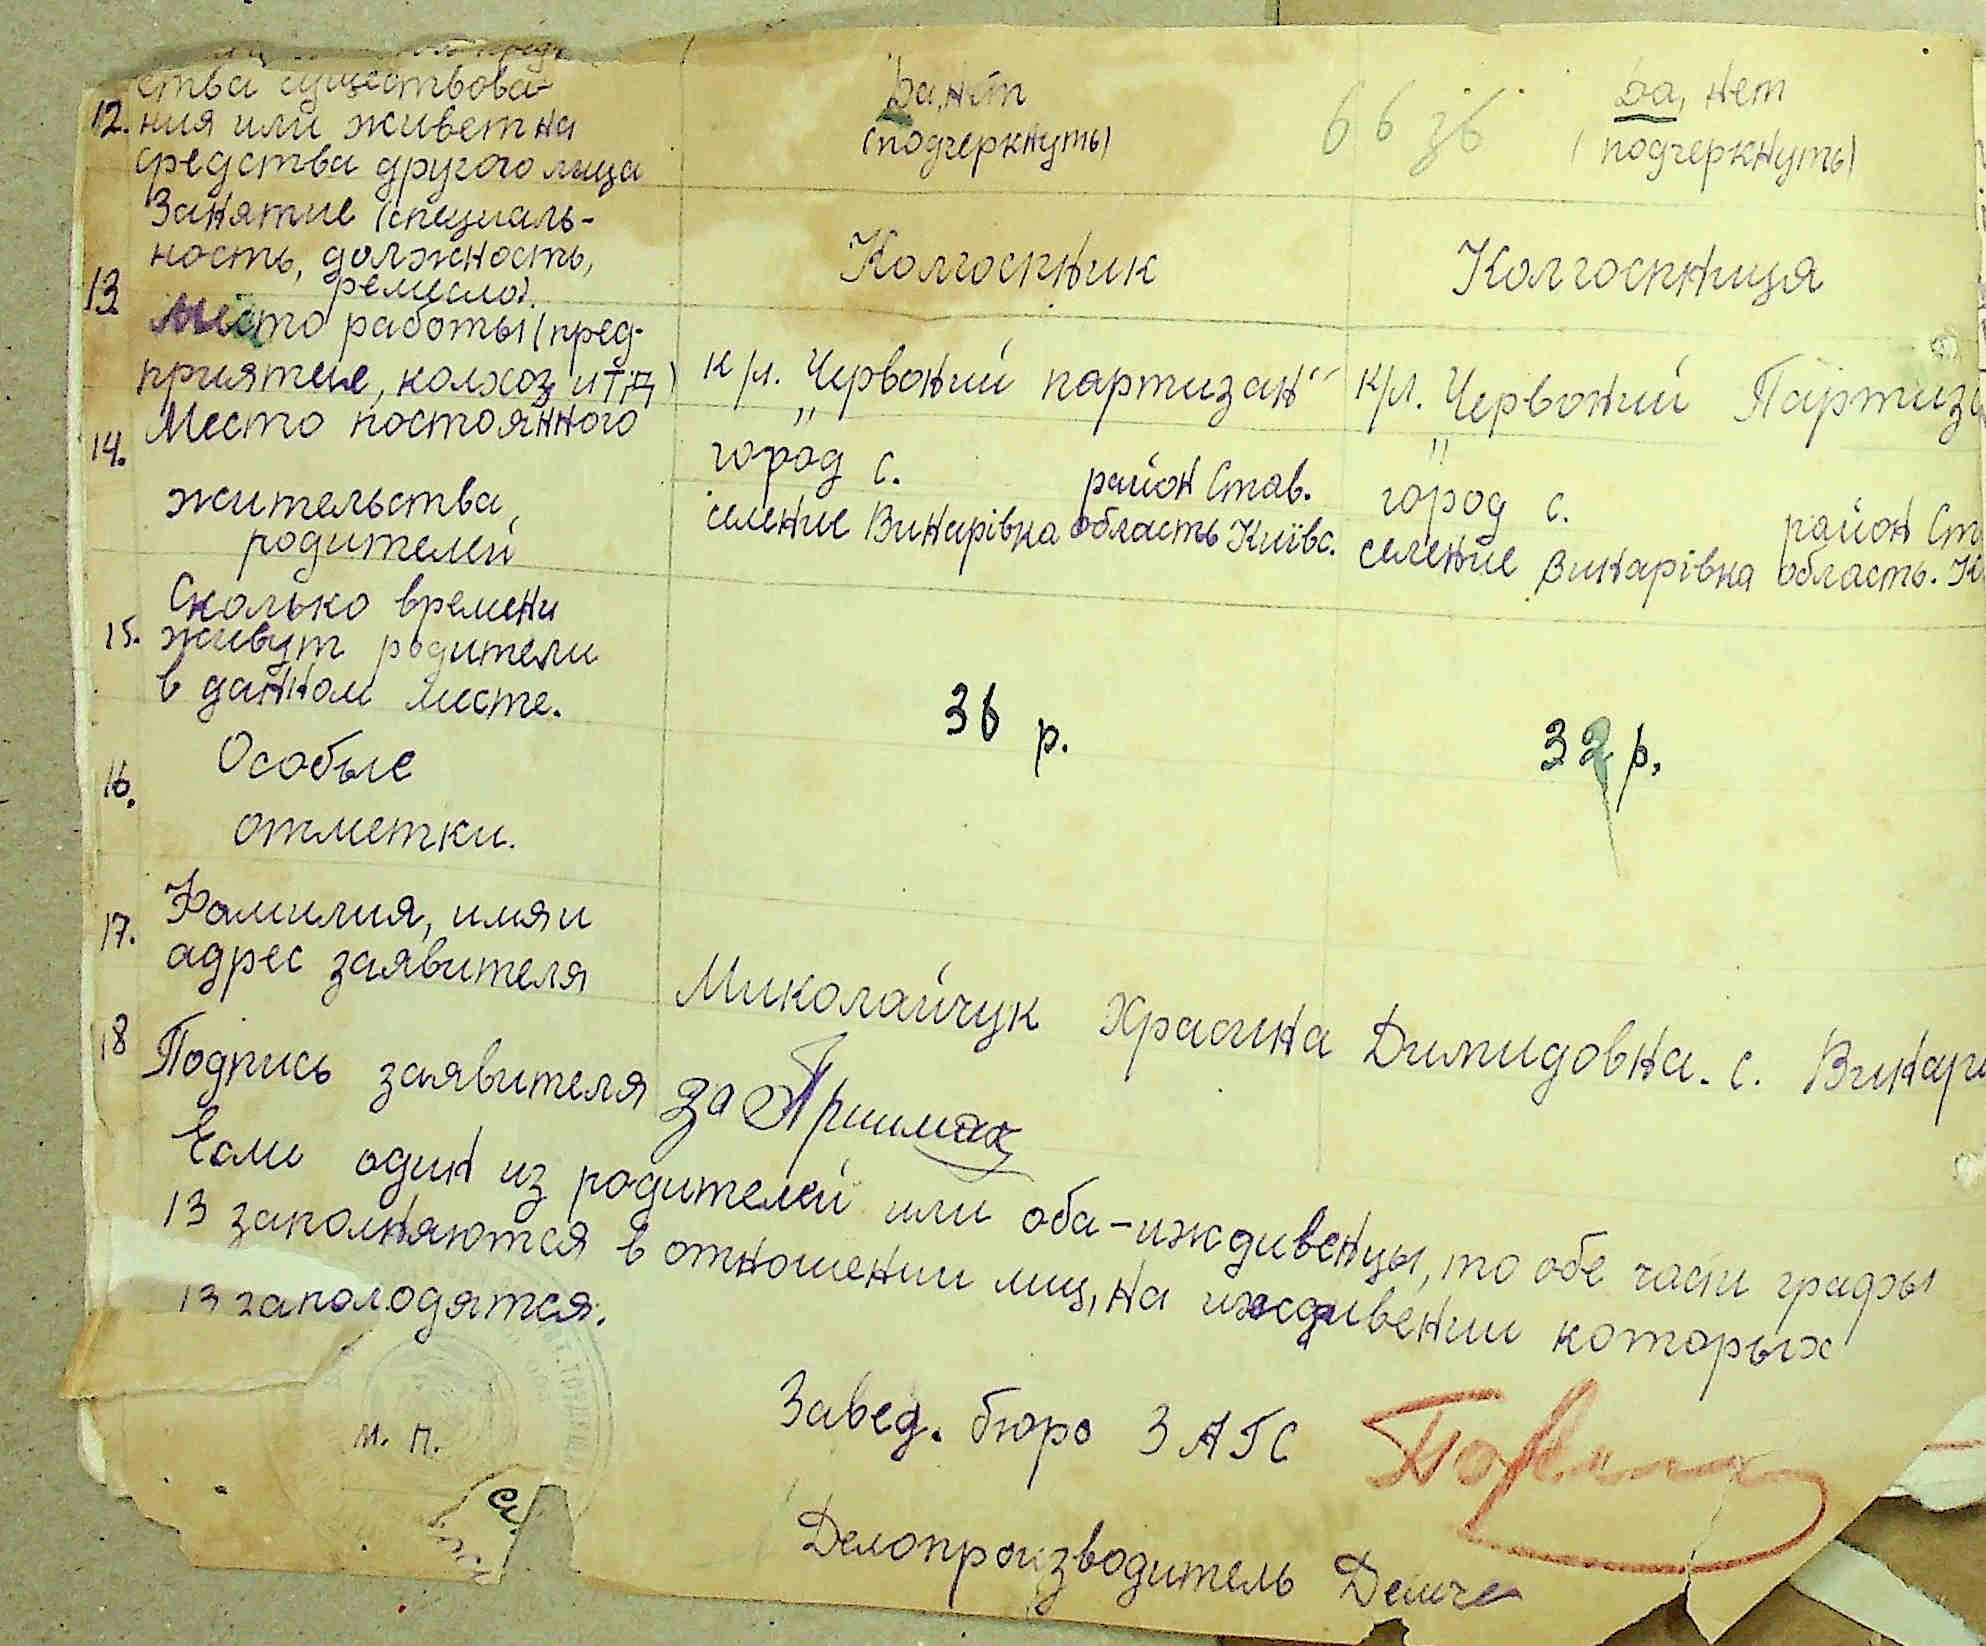 12. ства существова-
ния или живет на
средства другого лица
Да, нет
(подчеркнуть)
Да, нет
(подчеркнуть)
13 Занятие (специаль-
ность, должность,
ремесло).
Колгоспник
Колгоспниця
Место работы (пред-
приятие, колхоз и т.д)
к/л. "Червоний партизан"
к/л. "Червоний Партиза
14. Место постоянного
жительства
родителей
город с. район Став.
селение Винарівка область Київс.
город с. район Ст
селение Винарівка область. К
15. Сколько времени
живут родители
в данном месте.
36 р.
32 р.
16. Особые
отметки.
17. Фамилия, имя и
адрес заявителя
Миколайчук Храсина Димидовна. с. Винари
18 Подпись заявителя за Приймак
Если один из родителей или оба-иждивенцы, то обе части графы
13 заполняются в отношении лиц, на иждивении которых
13 заполодятся.
М. П.
Завед. бюро ЗАГС
Делопроизводитель Демче